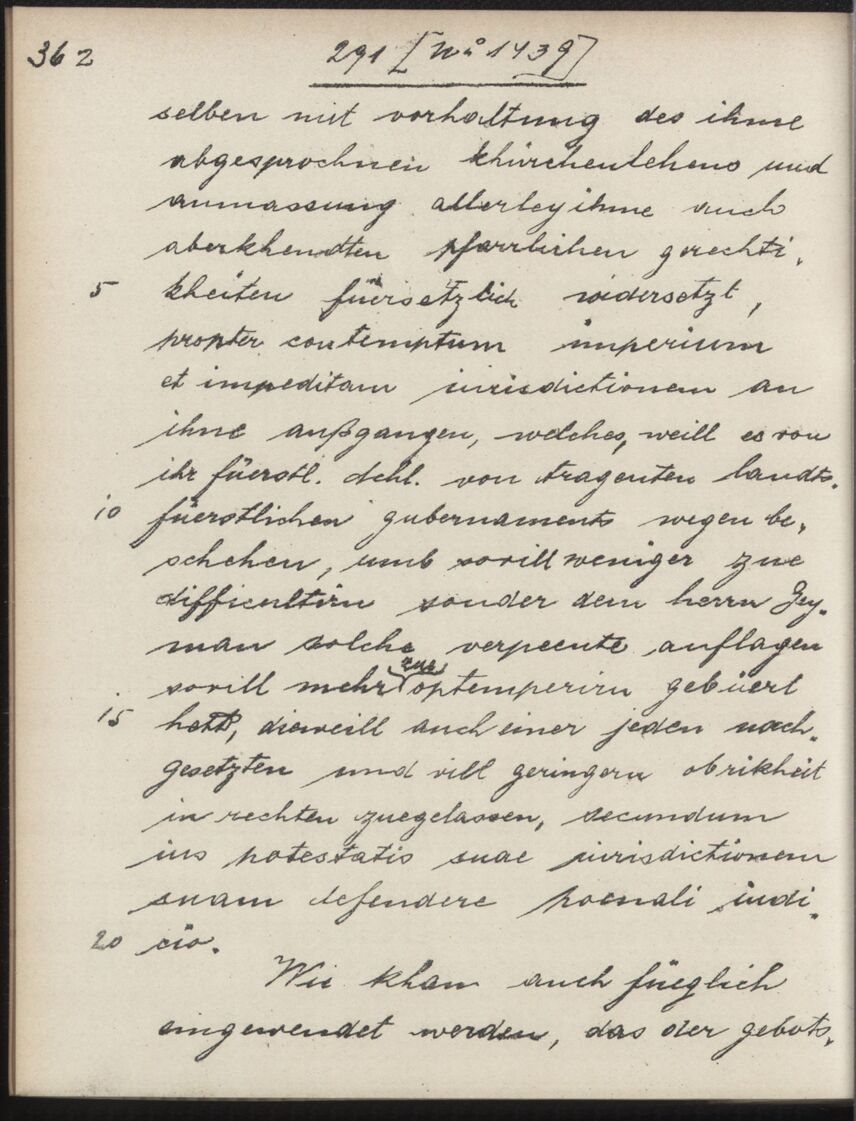 362 291 [No 1439]
selben mit vorhaltung des ihme
abgesprochnen khürchenlehens und
anmassung allerley ihme auch
aberkhendten pfarrlichen gerechti-
5 kheiten füersetzlich widersetzt,
propter contemptum imperium
et impeditam iurisdictionem an
ihne außgangen, welches, weill es von
ihr füerstl. dchl. von tragenten landts-
10 füerstlichen gubernaments wegen be-
schehen, umb sovill weniger zue
difficultirn sonder dem herrn Gey-
man solche verpeente auflagen
sovill mehr zue optemperirn gebüert
15 hett, dieweill auch einer jeden nach-
gesetzten und vill geringern obrikheit
in rechten zuegelassen, secundum
ius potestatis suae iurisdictionem
suam defendere poenali iudi-
20 cio.
Wie khan auch füeglich
eingewendet werden, das der gebots-